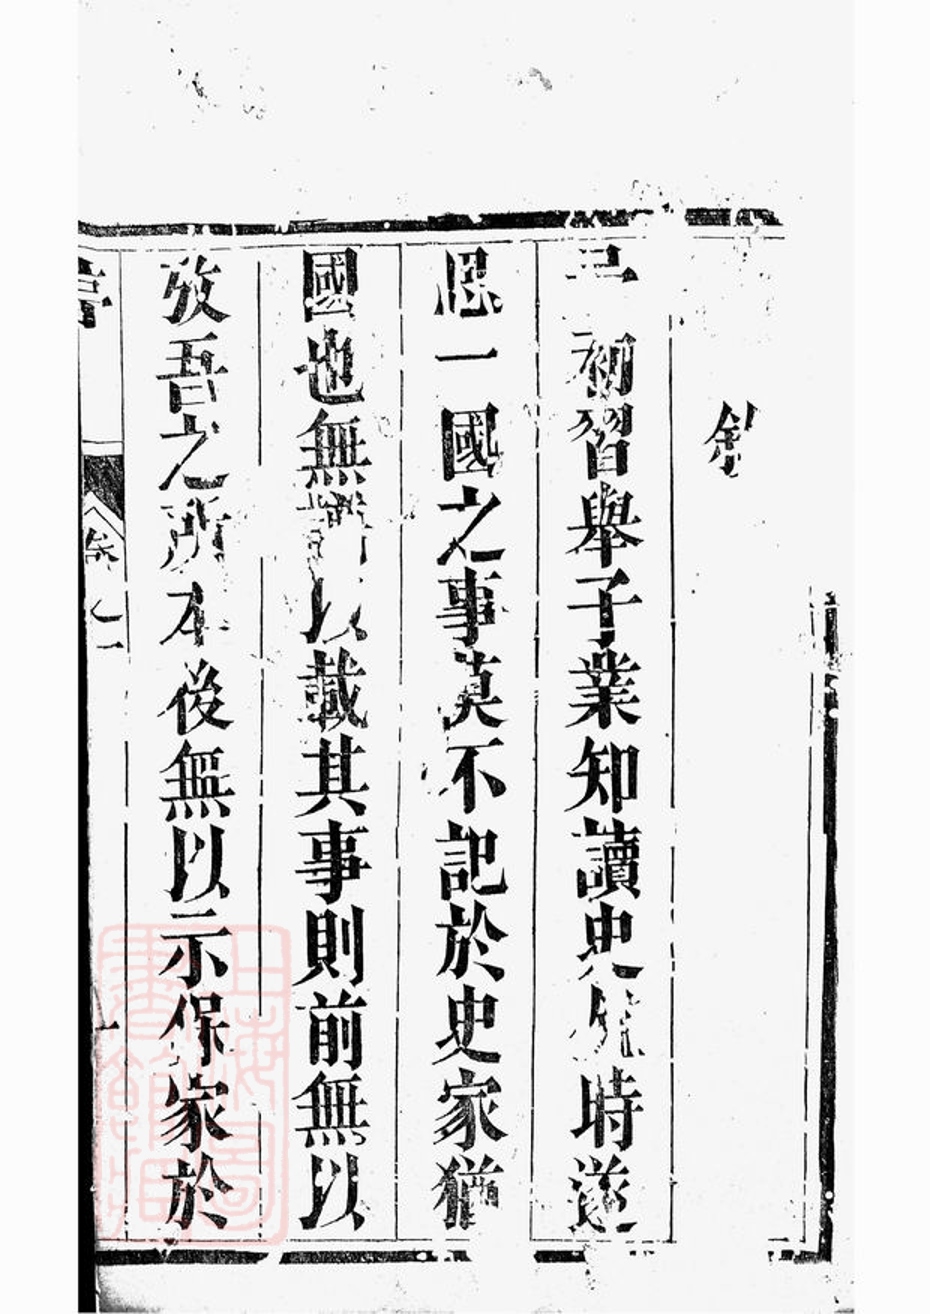 初習舉子業知讀史時遂
思一國之事莫不記於史家猶
國也無譜以載其事則前無以
攷吾之所本後無以示保家於